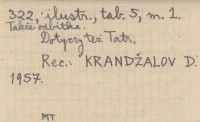 322, ilustr., tab. 5, m. 1.
Także odbitka.
Dotyczy też Tatr.
Rec.: KRANDŽALOV D.
1957.
MT